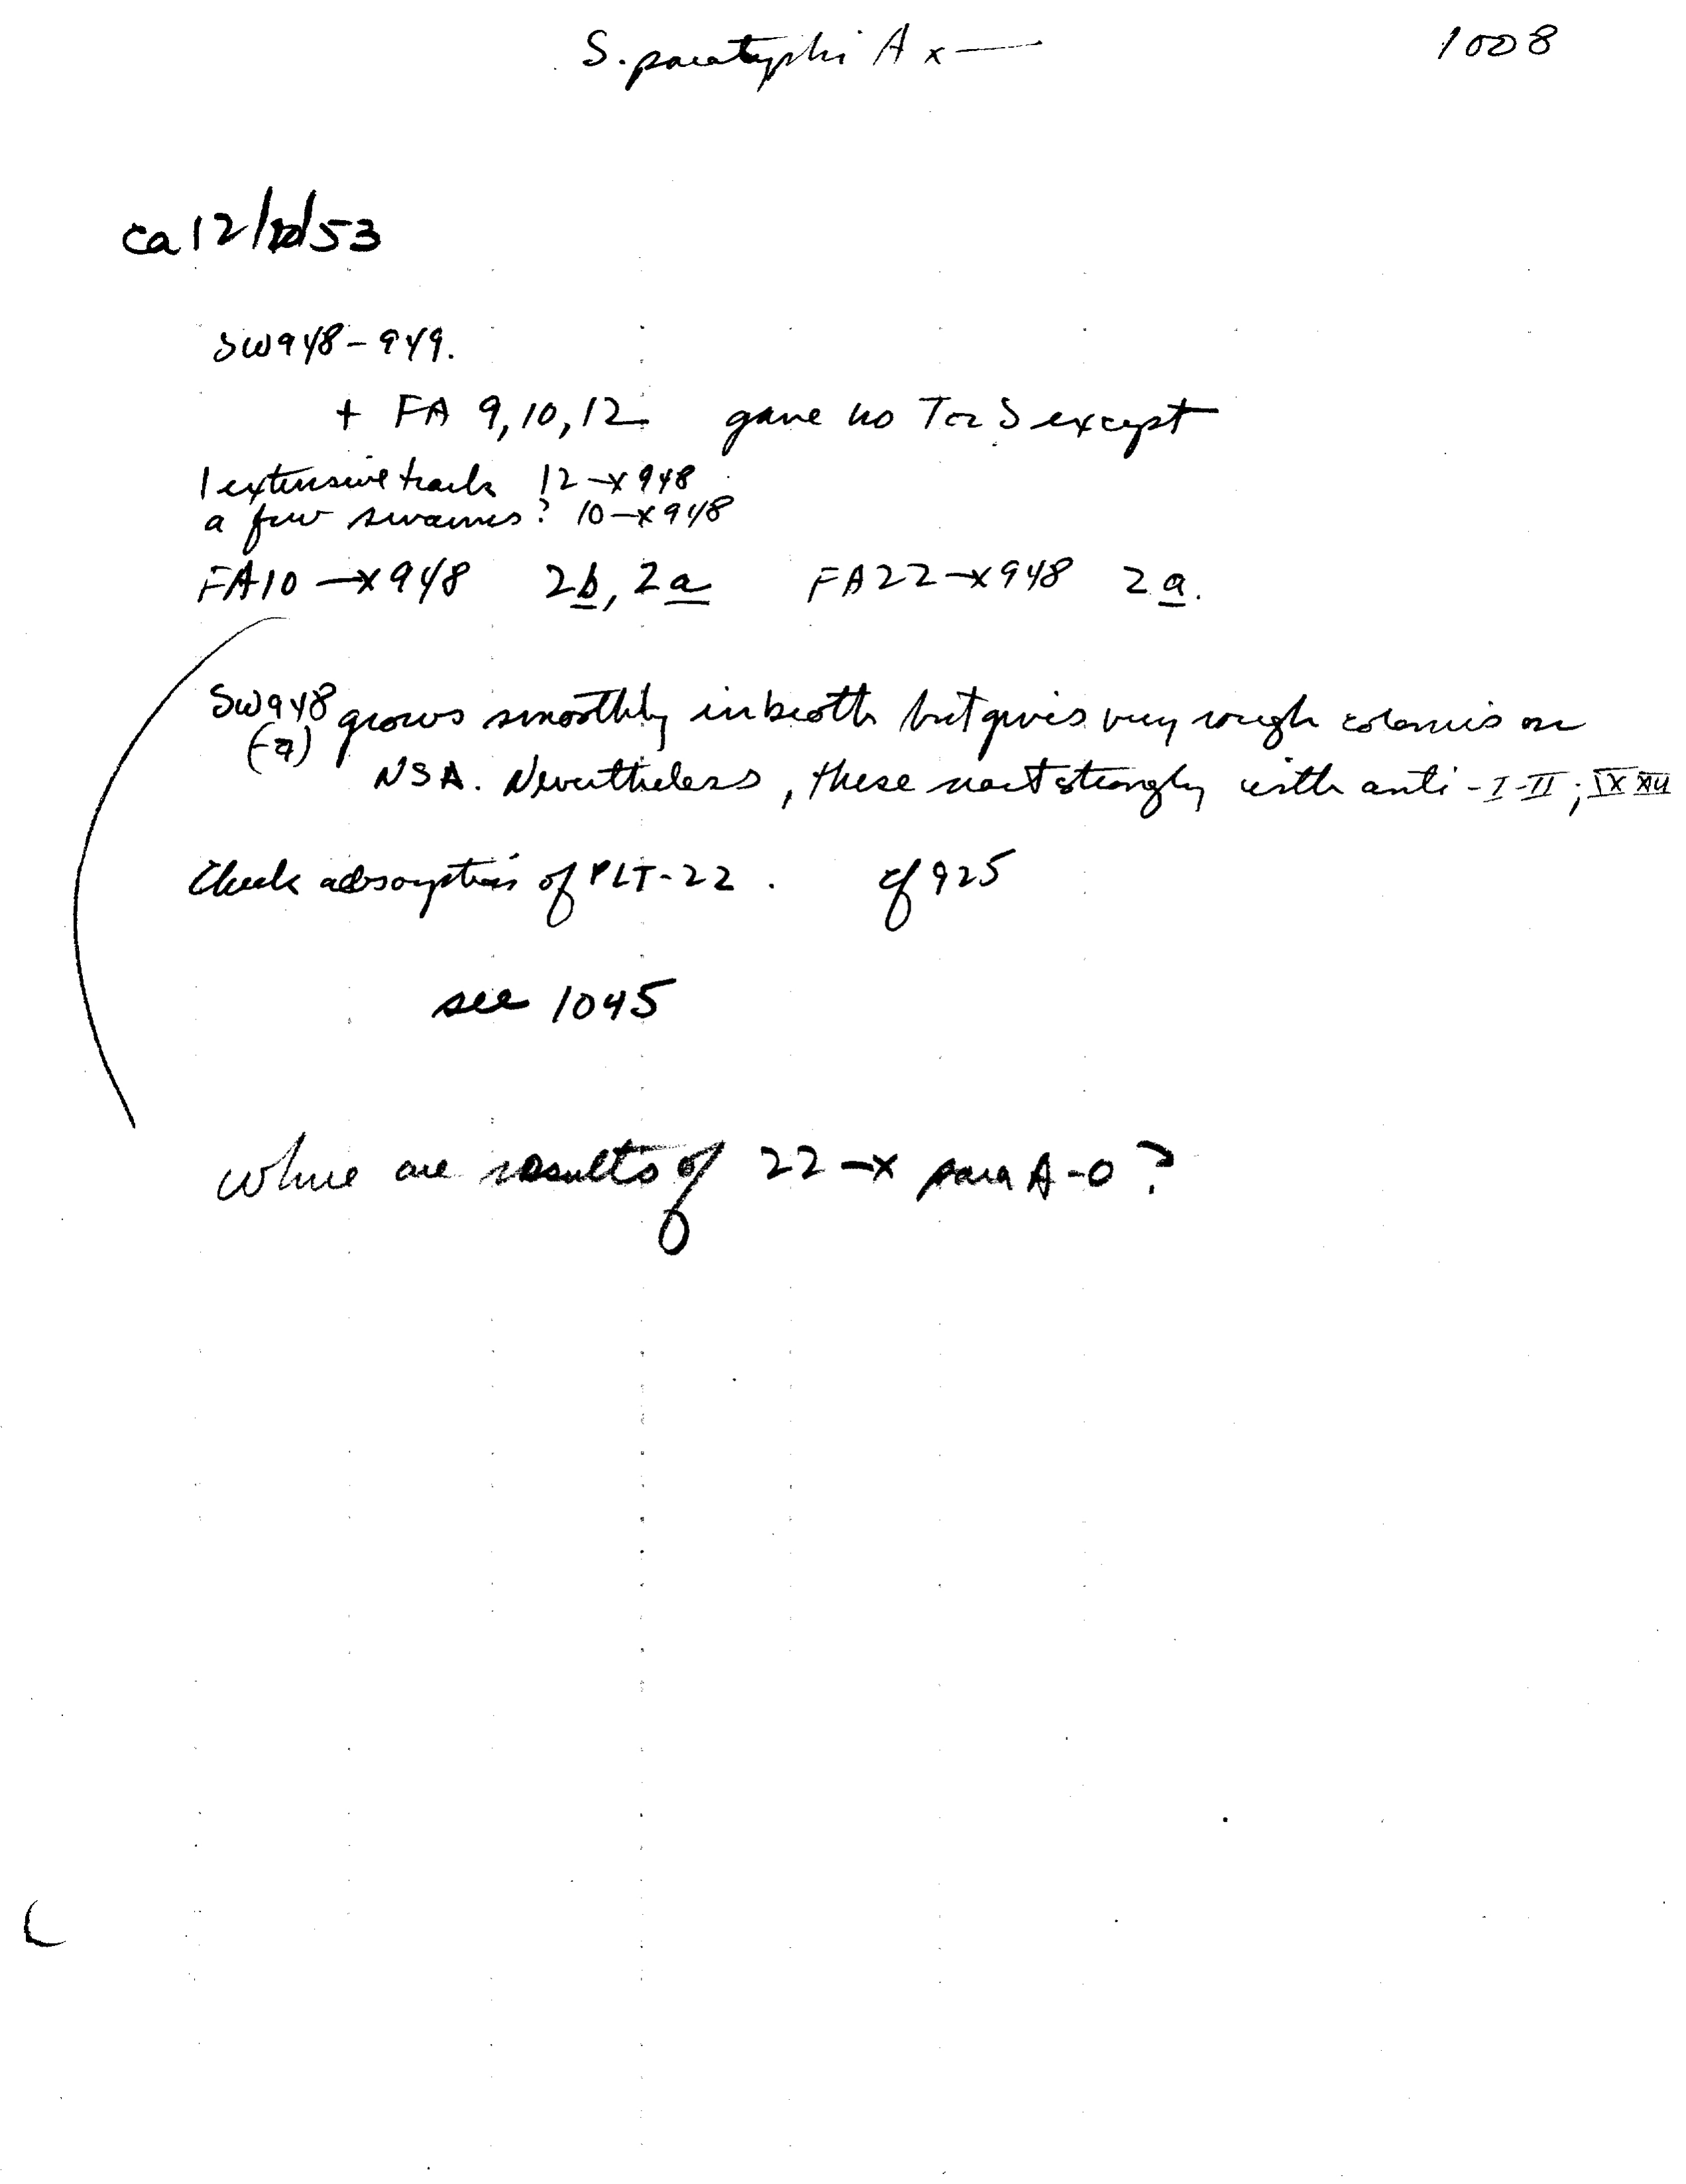 S. paratyphi A x —
1008
ca 12/10/53
SW948-949.
+ FA 9, 10, 12 gave no T or S except
1 extensive trails 12 —x 948
a few swarms? 10 —x 948
FA10 —x 948 2b, 2a FA22 —x 948 2a.
SW948 grows smoothly in broth but gives very rough colonies on
(-a)
NSA. Nevertheless, these react strongly with anti-I-II; IX XII
Check adsorption of PLT-22. cf 925
see 1045
Where are results of 22 —x para A-O?